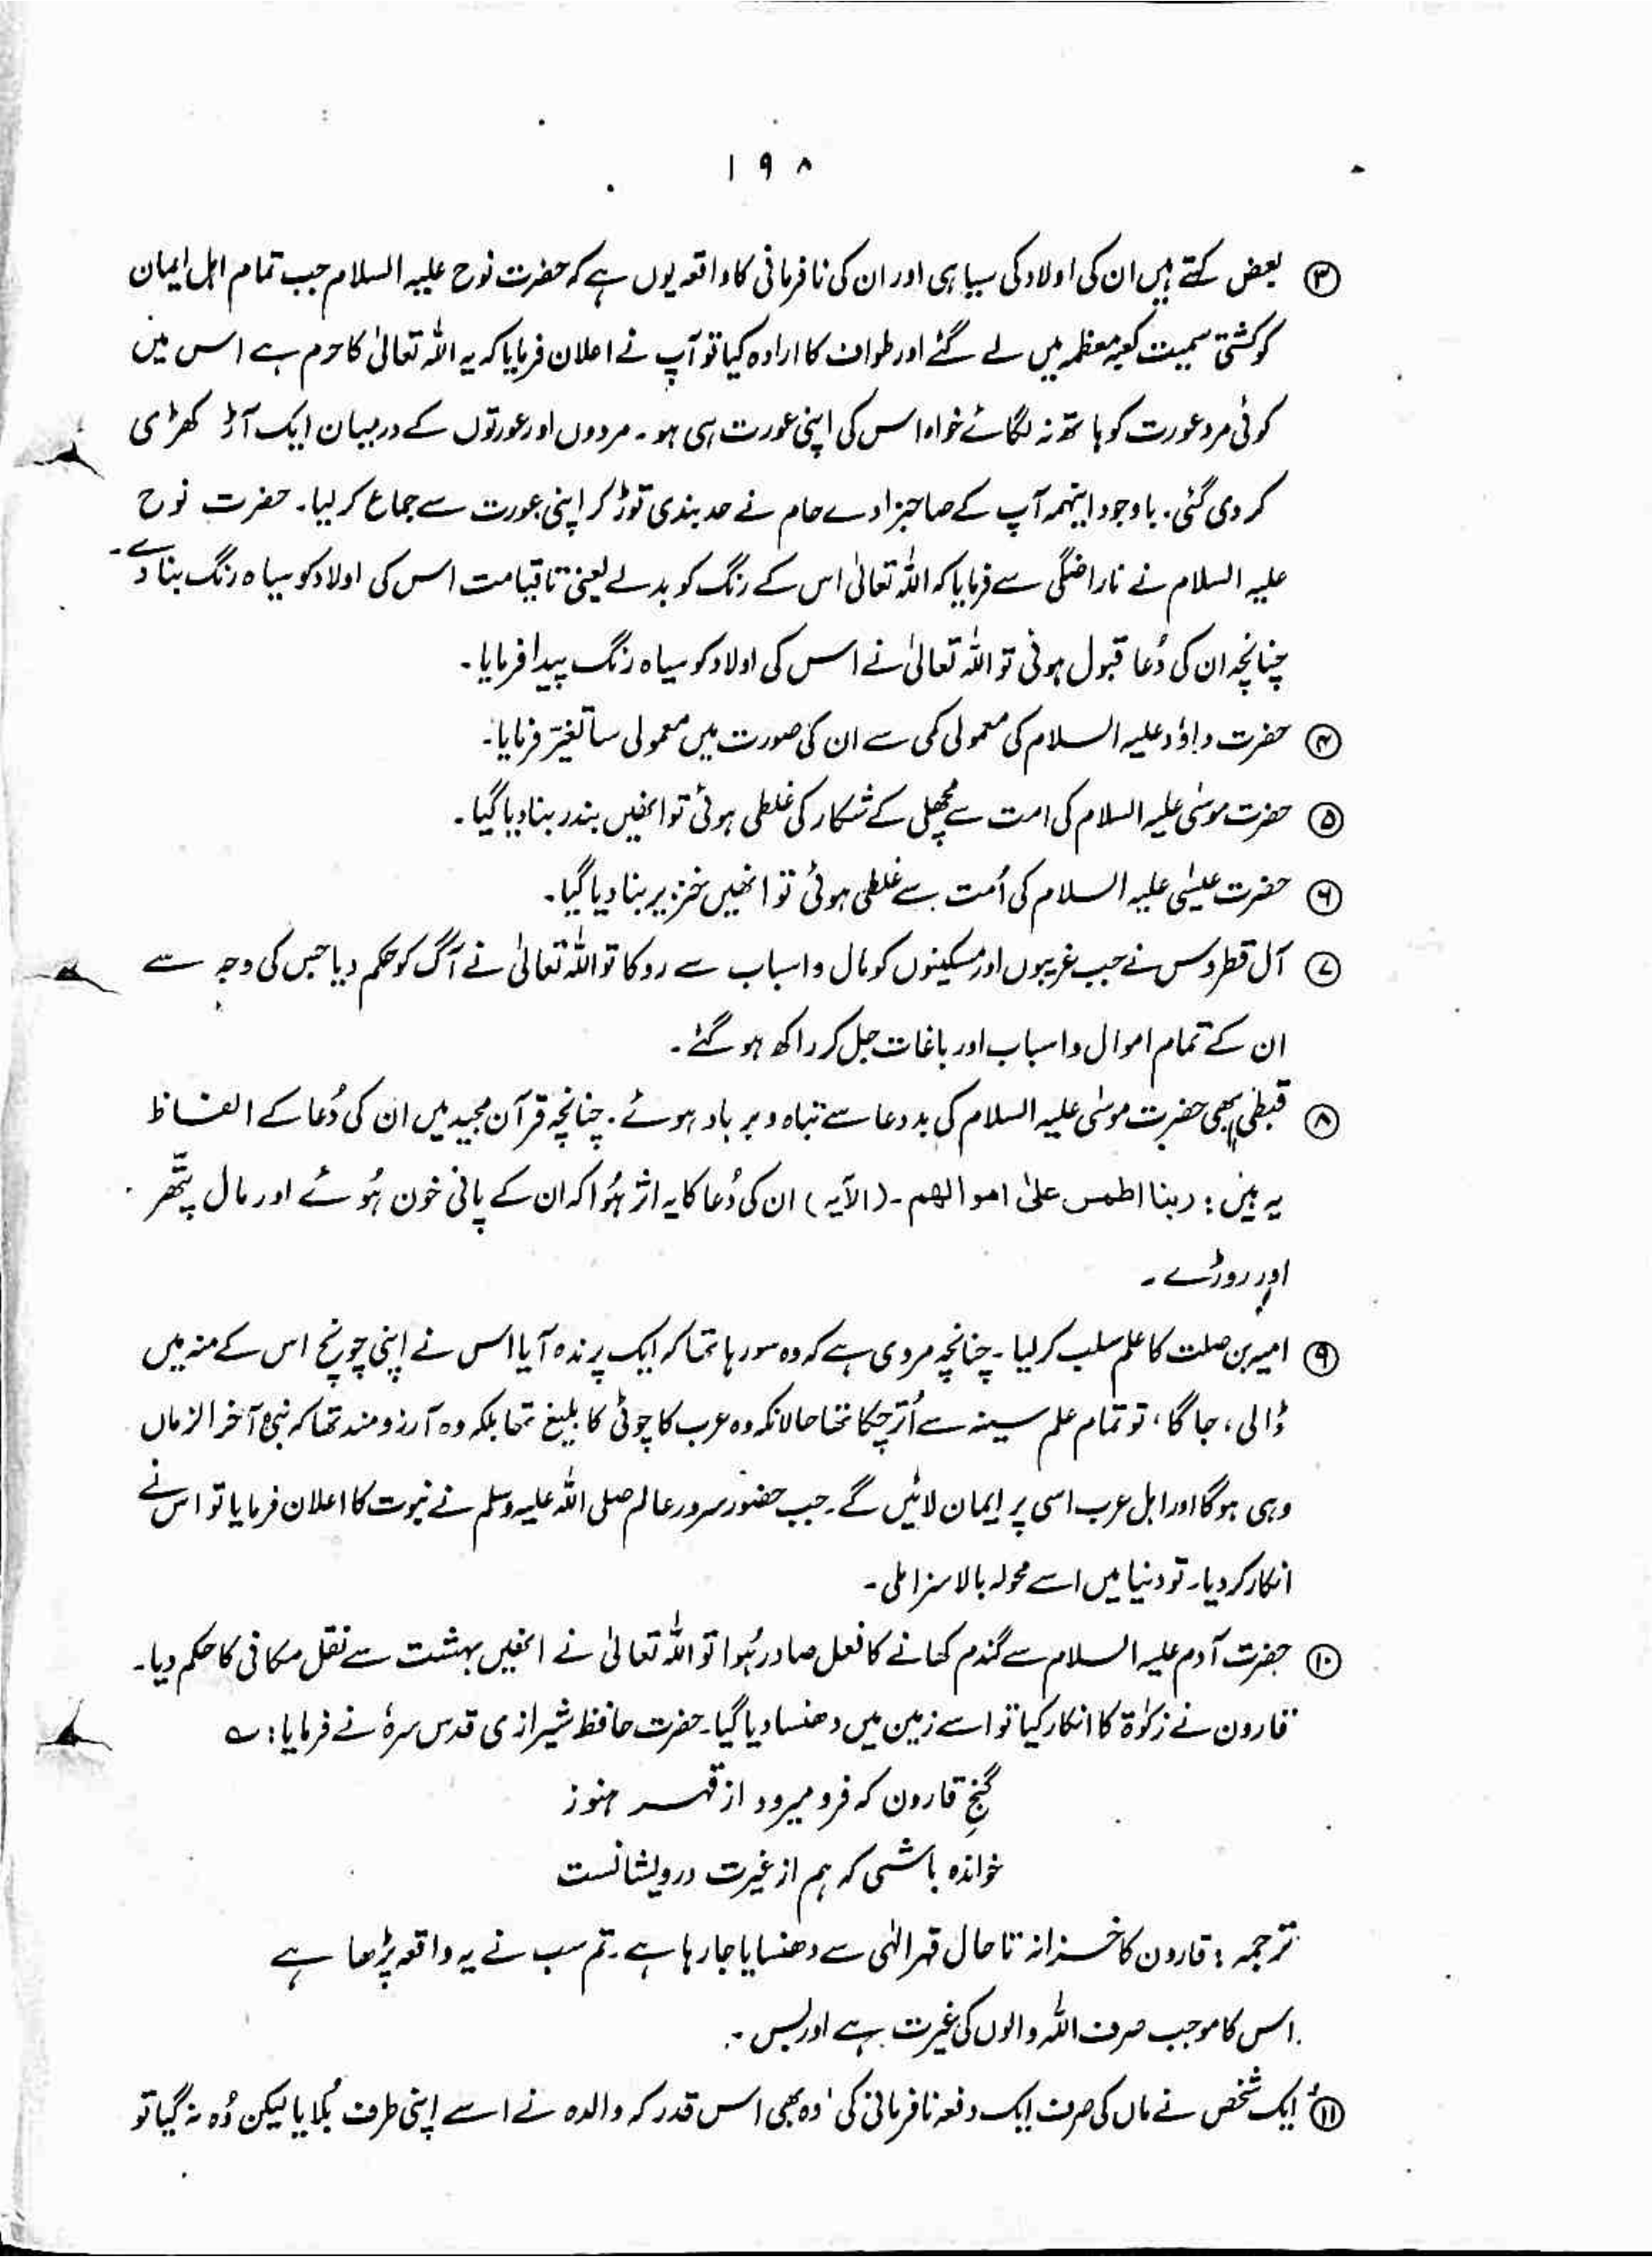 ۱۹۸
③ بعض کہتے ہیں ان کی اولاد کی سیاہی اور ان کی نافرمانی کا واقعہ یوں ہے کہ حضرت نوح علیہ السلام جب تمام اہل ایمان
کو کشتی سمیت کعبہ معظمہ میں لے گئے اور طواف کا ارادہ کیا تو آپ نے اعلان فرمایا کہ یہ اللہ تعالیٰ کا حرم ہے اس میں
کوئی مرد عورت کو ہاتھ نہ لگائے خواہ اس کی اپنی عورت ہی ہو۔ مردوں اور عورتوں کے درمیان ایک آڑ کھڑی
کر دی گئی۔ باوجود اینہمہ آپ کے صاحبزادے حام نے حد بندی توڑ کر اپنی عورت سے جماع کر لیا۔ حضرت نوح
علیہ السلام نے ناراضگی سے فرمایا کہ اللہ تعالیٰ اس کے رنگ کو بدلے یعنی تا قیامت اس کی اولاد کو سیاہ رنگ بنا دے۔
چنانچہ ان کی دُعا قبول ہوئی تو اللہ تعالیٰ نے اس کی اولاد کو سیاہ رنگ پیدا فرمایا۔
④ حضرت داؤد علیہ السلام کی معمولی کمی سے ان کی صورت میں معمولی سا تغیّر فرمایا۔
⑤ حضرت موسٰی علیہ السلام کی امت سے مچھلی کے شکار کی غلطی ہوئی تو انھیں بندر بنا دیا گیا۔
⑥ حضرت عیسٰی علیہ السلام کی اُمت سے غلطی ہوئی تو انھیں خنزیر بنا دیا گیا۔
⑦ آل قطروس نے جب غریبوں اور مسکینوں کو مال و اسباب سے روکا تو اللہ تعالیٰ نے آگ کو حکم دیا جس کی وجہ سے
ان کے تمام اموال و اسباب اور باغات جل کر راکھ ہو گئے۔
⑧ قبطی بھی حضرت موسٰی علیہ السلام کی بد دعا سے تباہ و برباد ہوئے۔ چنانچہ قرآن مجید میں ان کی دُعا کے الفاظ
یہ ہیں : ربنا اطمس علیٰ اموالھم۔ (الآیہ) ان کی دُعا کا یہ اثر ہُوا کہ ان کے پانی خون ہُوئے اور مال پتّھر
اور روڑے۔
⑨ امیہ بن صلت کا علم سلب کر لیا۔ چنانچہ مروی ہے کہ وہ سو رہا تھا کہ ایک پرندہ آیا اس نے اپنی چونچ اس کے منہ میں
ڈالی، جاگا، تو تمام علم سینہ سے اُتر چکا تھا حالانکہ وہ عرب کا چوٹی کا بلیغ تھا بلکہ وہ آرزو مند تھا کہ نبی آخر الزماں
وہی ہو گا اور اہل عرب اسی پر ایمان لائیں گے۔ جب حضور سرور عالم صلی اللہ علیہ وسلم نے نبوت کا اعلان فرمایا تو اس نے
انکار کر دیا۔ تو دنیا میں اسے محولہ بالا سزا ملی۔
⑩ حضرت آدم علیہ السلام سے گندم کھانے کا فعل صادر ہُوا تو اللہ تعالیٰ نے انھیں بہشت سے نقل مکانی کا حکم دیا۔
قارون نے زکوٰۃ کا انکار کیا تو اسے زمین میں دھنسا دیا گیا۔ حضرت حافظ شیرازی قدس سرہٗ نے فرمایا : ؎
گنجِ قارون کہ فرو میرود از قہر ہنوز
خواندہ باشی کہ ہم از غیرت درویشانست
ترجمہ : قارون کا خزانہ تا حال قہر الٰہی سے دھنسایا جا رہا ہے۔ تم سب نے یہ واقعہ پڑھا ہے
اس کا موجب صرف اللہ والوں کی غیرت ہے اور بس۔
⑪ ایک شخص نے ماں کی صرف ایک دفعہ نافرمانی کی، وہ بھی اس قدر کہ والدہ نے اسے اپنی طرف بُلایا لیکن وُہ نہ گیا تو